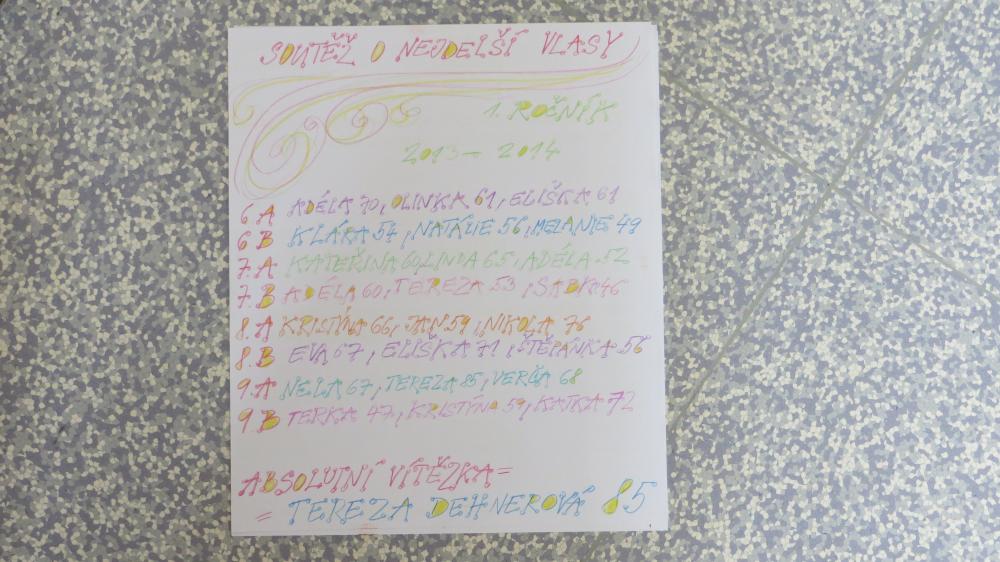 SOUTĚŽ O NEJDELŠÍ VLASY
1. ROČNÍK
2013 – 2014
6.A ADÉLA 70, OLINKA 61, ELIŠKA 61
6 B KLÁRA 54, NATÁLIE 56, MELANIE 49
7.A KATEŘINA 60, LINDA 65, ADÉLA 52
7.B ADÉLA 60, TEREZA 53, 46
8.A KRISTÝNA 66, JAN 59, NIKOLA 76
8.B EVA 67, ELIŠKA 71, ŠTĚPÁNKA 56
9.A NELA 67, TEREZA 85, VERČA 68
9 B TERKA 47, KRISTÝNA 59, KATKA 72
ABSOLUTNÍ VÍTĚZKA =
= TEREZA DEHNEROVÁ 85